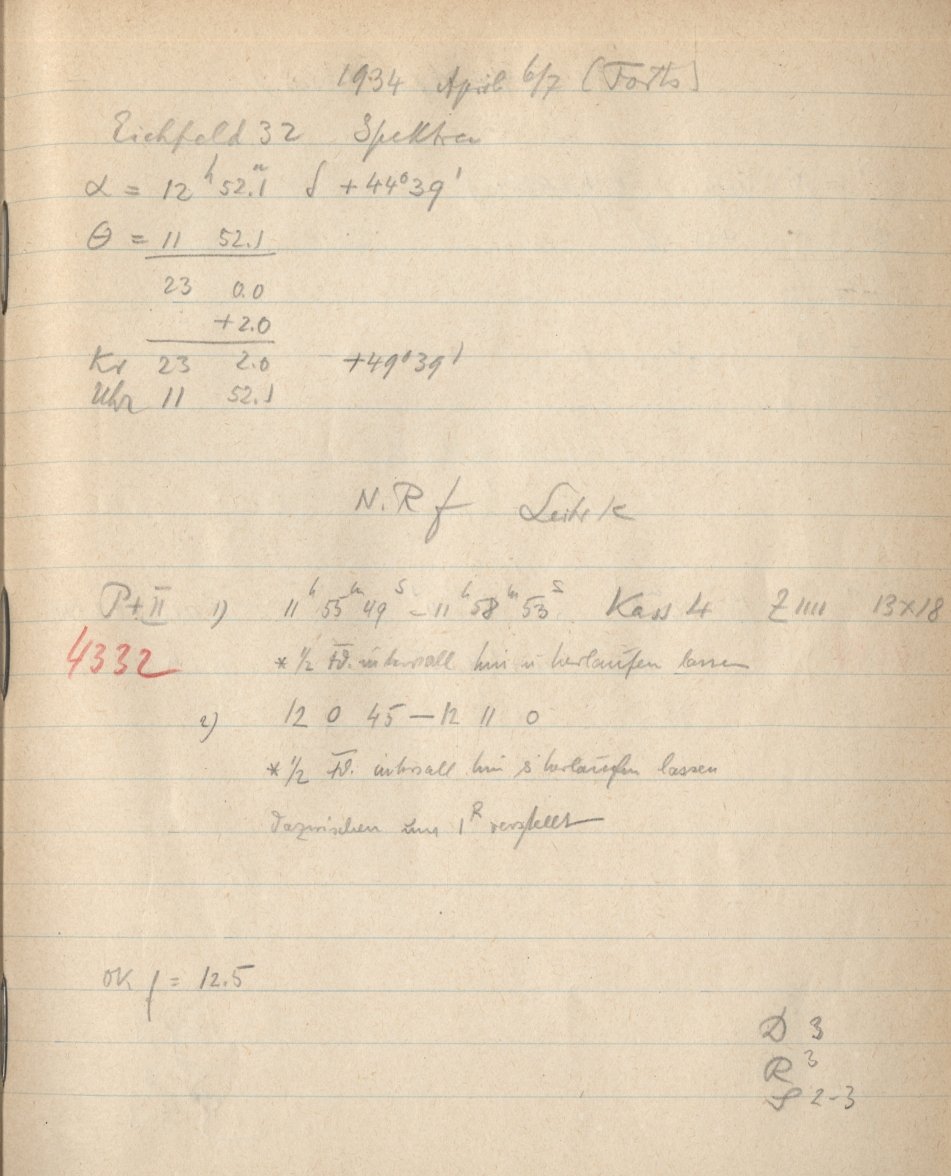 1934 April 6/7 (Forts)
Eichfeld 32 Spektren
α = 12ʰ 52.1ᵐ δ +44°39'
θ = 11 52.1
23 0.0
+2.0
Kr 23 2.0 +49°39'
Uhr 11 52.1
N.R f
P+II 1) 11ʰ 55ᵐ 49ˢ – 11ʰ 58ᵐ 53ˢ Kass 4 Z IIII 13x18
4332
* ½ Fd. intervall hin u herlaufen lassen
2) 12 0 45 – 12 11 0
* ½ Fd. intervall hin s herlaufen lassen
dazwischen um 1ᴿ verstellt
OK f = 12.5
D 3
R 3
S 2-3